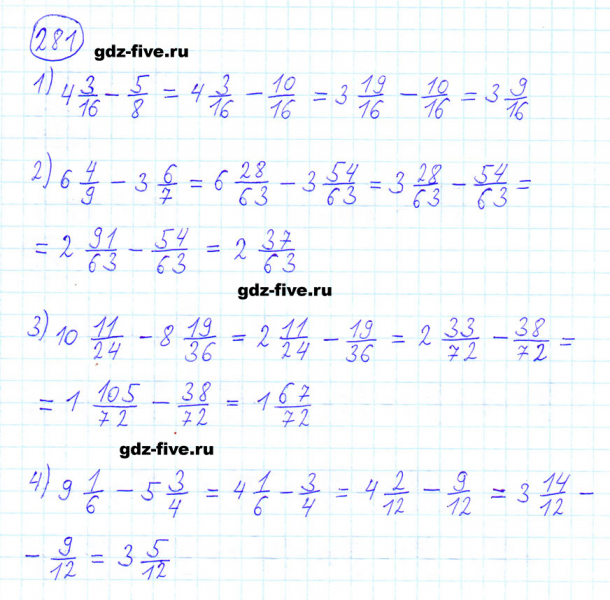 281 gdz-five.ru
1) 4 3/16 - 5/8 = 4 3/16 - 10/16 = 3 19/16 - 10/16 = 3 9/16
2) 6 4/9 - 3 6/7 = 6 28/63 - 3 54/63 = 3 28/63 - 54/63 =
= 2 91/63 - 54/63 = 2 37/63
gdz-five.ru
3) 10 11/24 - 8 19/36 = 2 11/24 - 19/36 = 2 33/72 - 38/72 =
= 1 105/72 - 38/72 = 1 67/72
gdz-five.ru
4) 9 1/6 - 5 3/4 = 4 1/6 - 3/4 = 4 2/12 - 9/12 = 3 14/12 -
- 9/12 = 3 5/12